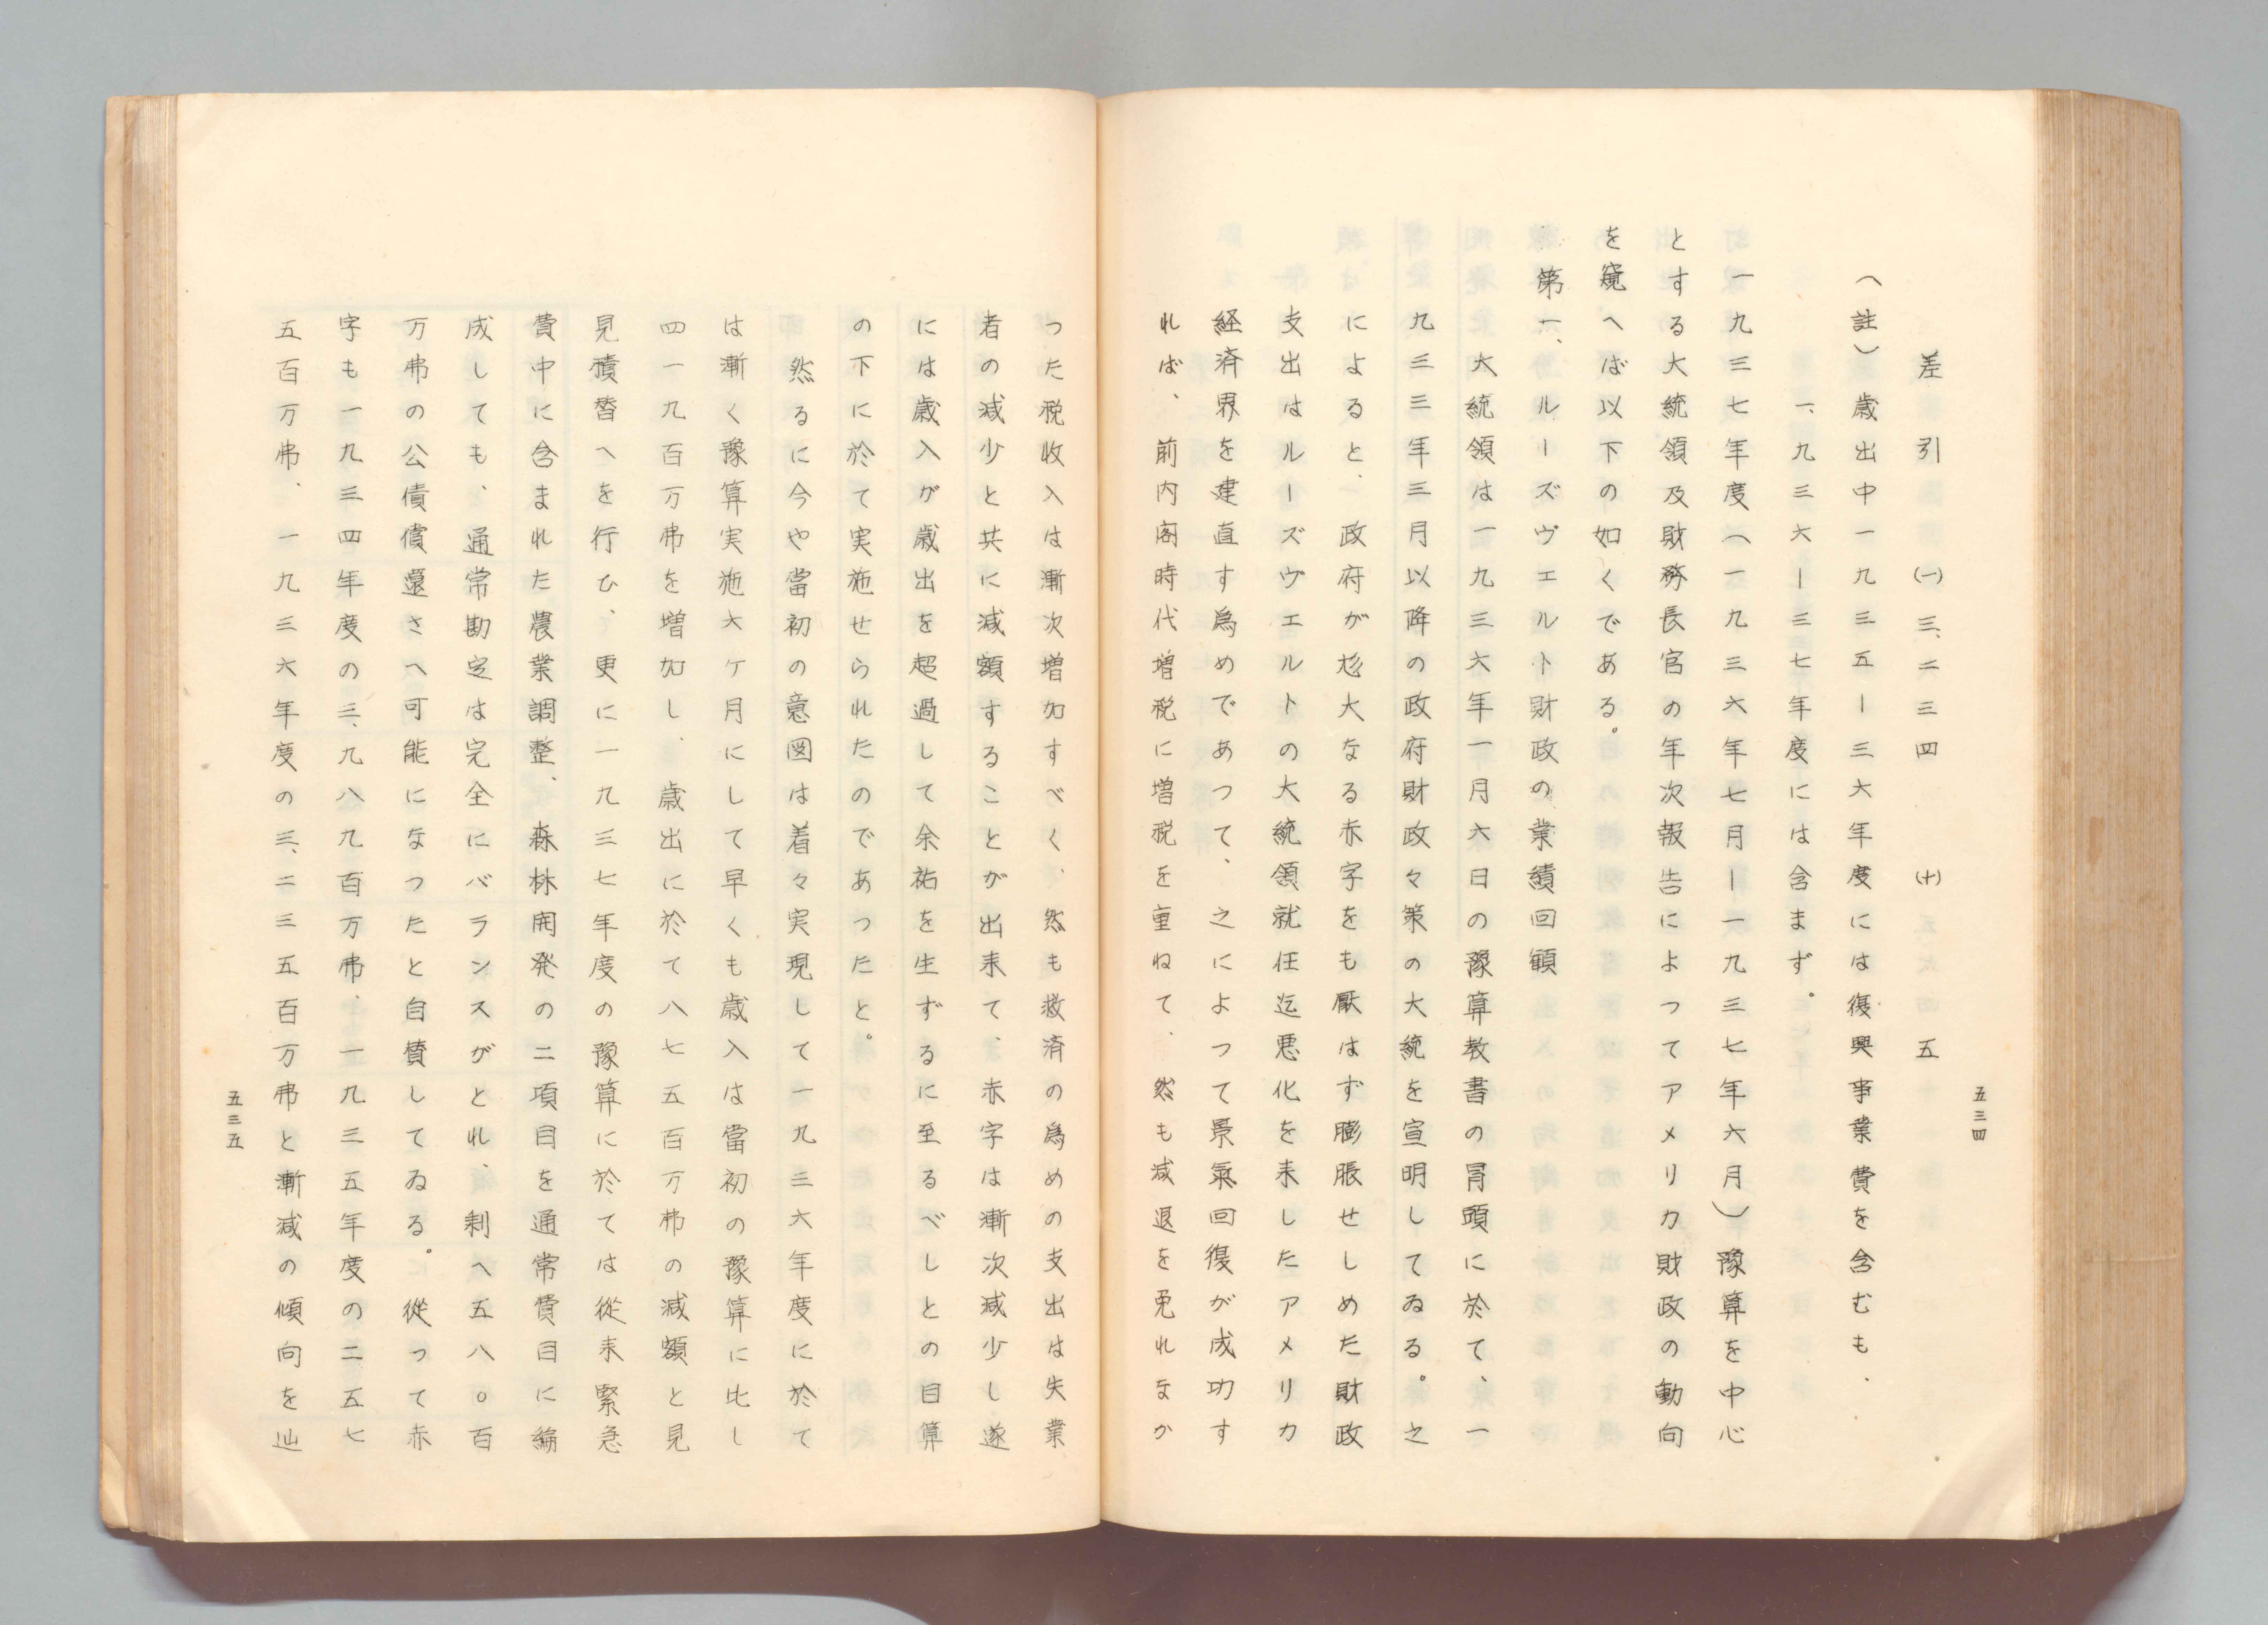 五三四
差引 (一)三、二三四 (十)五
(註)歳出中一九三五ー三六年度には復興事業費を含むも、
一、九三六ー三七年度には含まず。
一九三七年度(一九三六年七月ー一九三七年六月)豫算を中心
とする大統領及財務長官の年次報告によつてアメリカ財政の動向
を窺へば以下の如くである。
第一、ルーズヴエルト財政の業績回顧
大統領は一九三六年一月六日の豫算教書の冐頭に於て、一
九三三年三月以降の政府財政々策の大統を宣明してゐる。之
によると、政府が尨大なる赤字をも厭はず膨脹せしめた財政
支出はルーズヴエルトの大統領就任迄悪化を来したアメリカ
経済界を建直す爲めであつて、之によつて景氣回復が成功す
れば、前内閣時代増税に増税を重ねて、然も減退を免れなか
つた税收入は漸次増加すべく、然も救済の爲めの支出は失業
者の減少と共に減額することが出来て、赤字は漸次減少し遂
には歳入が歳出を超過して余祐を生ずるに至るべしとの目算
の下に於て実施せられたのであつたと。
然るに今や當初の意図は着々実現して一九三六年度に於て
は漸く豫算実施六ケ月にして早くも歳入は當初の豫算に比し
四一九百万弗を増加し、歳出に於て八七五百万弗の減額と見
見積替へを行ひ、更に一九三七年度の豫算に於ては從来緊急
費中に含まれた農業調整、森林開発の二項目を通常費目に編
成しても、通常勘定は完全にバランスがとれ、剰へ五八〇百
万弗の公債償還さへ可能になつたと自賛してゐる。從つて赤
字も一九三四年度の三、九八九百万弗、一九三五年度の二五七
五百万弗、一九三六年度の三、二三五百万弗と漸減の傾向を辿
五三五